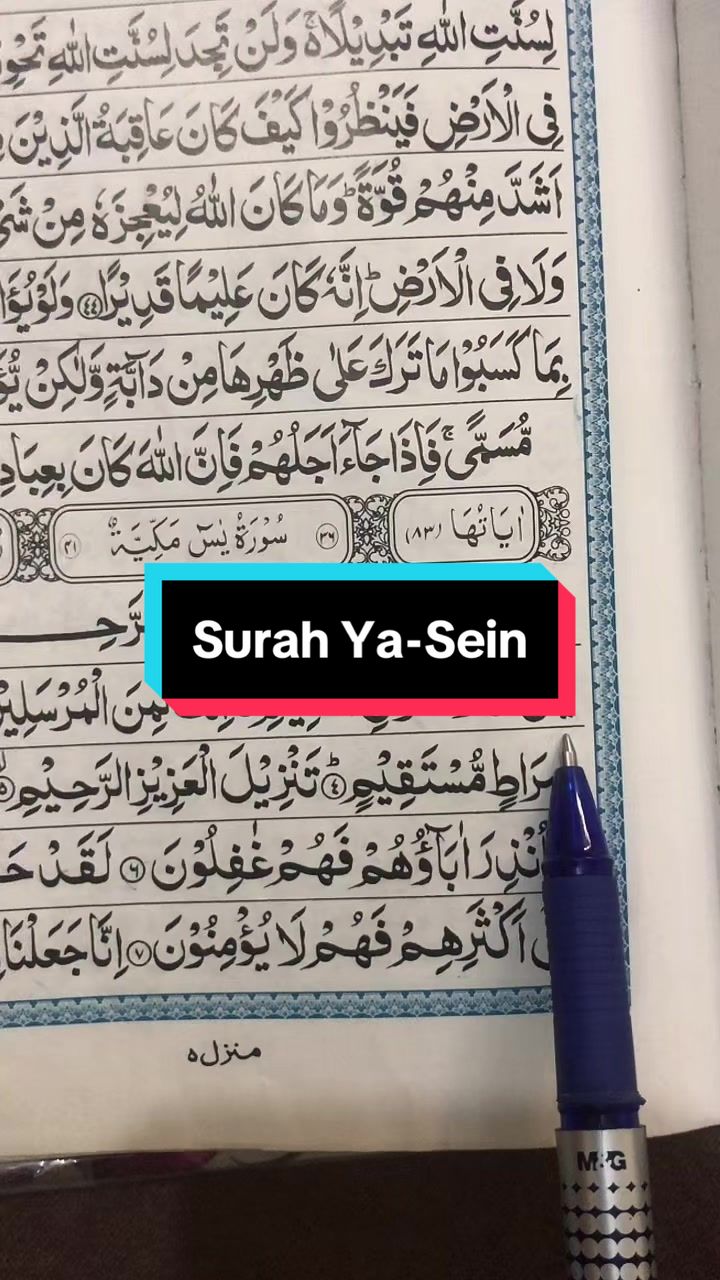 لِسُنَّتِ اللّٰهِ تَبْدِيْلًا ۚ وَلَنْ تَجِدَ لِسُنَّتِ اللّٰهِ
فِی الْاَرْضِ فَيَنْظُرُوْا كَيْفَ كَانَ عَاقِبَةُ الَّذِيْنَ
اَشَدَّ مِنْهُمْ قُوَّةً ؕ وَمَا كَانَ اللّٰهُ لِيُعْجِزَهٗ مِنْ
وَلَا فِی الْاَرْضِ ؕ اِنَّهٗ كَانَ عَلِيْمًا قَدِيْرًا ﴿٤٤﴾
بِمَا كَسَبُوْا مَا تَرَكَ عَلٰی ظَهْرِهَا مِنْ دَآبَّةٍ وَّلٰكِنْ
مُّسَمًّی ۚ فَاِذَا جَآءَ اَجَلُهُمْ فَاِنَّ اللّٰهَ كَانَ
اٰيَاتُهَا (٨٣) ﴿٣٦﴾ سُوْرَةُ يٰسٓ مَكِّيَّةٌ ﴿٤١﴾
Surah Ya-Sein
لَمِنَ الْمُرْسَلِيْنَ
مُّسْتَقِيْمٍ ؕ ﴿٤﴾ تَنْزِيْلَ الْعَزِيْزِ الرَّحِيْمِ ۙ ﴿٥﴾
اٰبَآؤُهُمْ فَهُمْ غٰفِلُوْنَ ﴿٦﴾ لَقَدْ
اَكْثَرِهِمْ فَهُمْ لَا يُؤْمِنُوْنَ ﴿٧﴾ اِنَّا جَعَلْنَا
منزل ٥
M&G